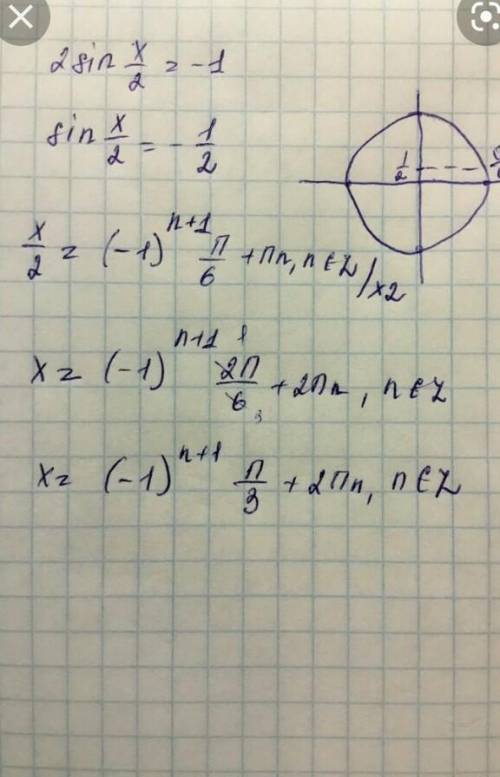 2sin x/2 = -1
sin x/2 = - 1/2
1/2
x/2 = (-1)^n+1 П/6 + Пn, n∈Z /x2
x = (-1)^n+1 2П/6 + 2Пn, n∈Z
1
3
x = (-1)^n+1 П/3 + 2Пn, n∈Z